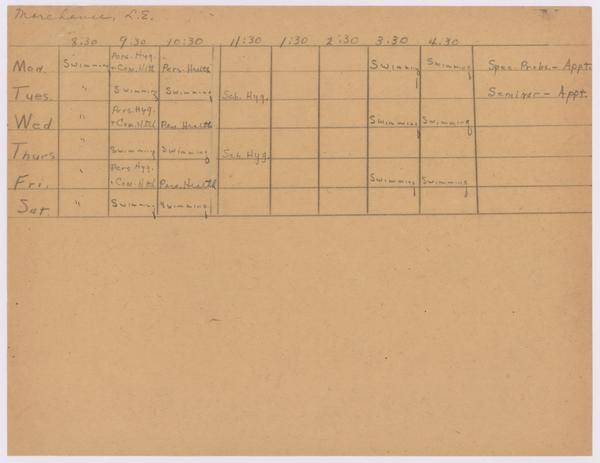 Morehouse, L.E.
8:30 9:30 10:30 11:30 1:30 2:30 3:30 4:30
Pers. Hyg.
Mon. Swimming + Com. Hlth Pers. Health Swimming Swimming Spec. Probs. - Appt.
Tues. " Swimming Swimming Sch. Hyg. Seminar - Appt.
Pers. Hyg.
Wed " + Com. Hlth Pers. Health Swimming Swimming
Thurs " Swimming Swimming Sch. Hyg.
Pers Hyg.
Fri. " + Com. Hlth Pers. Health Swimming Swimming
Sat. " Swimming Swimming